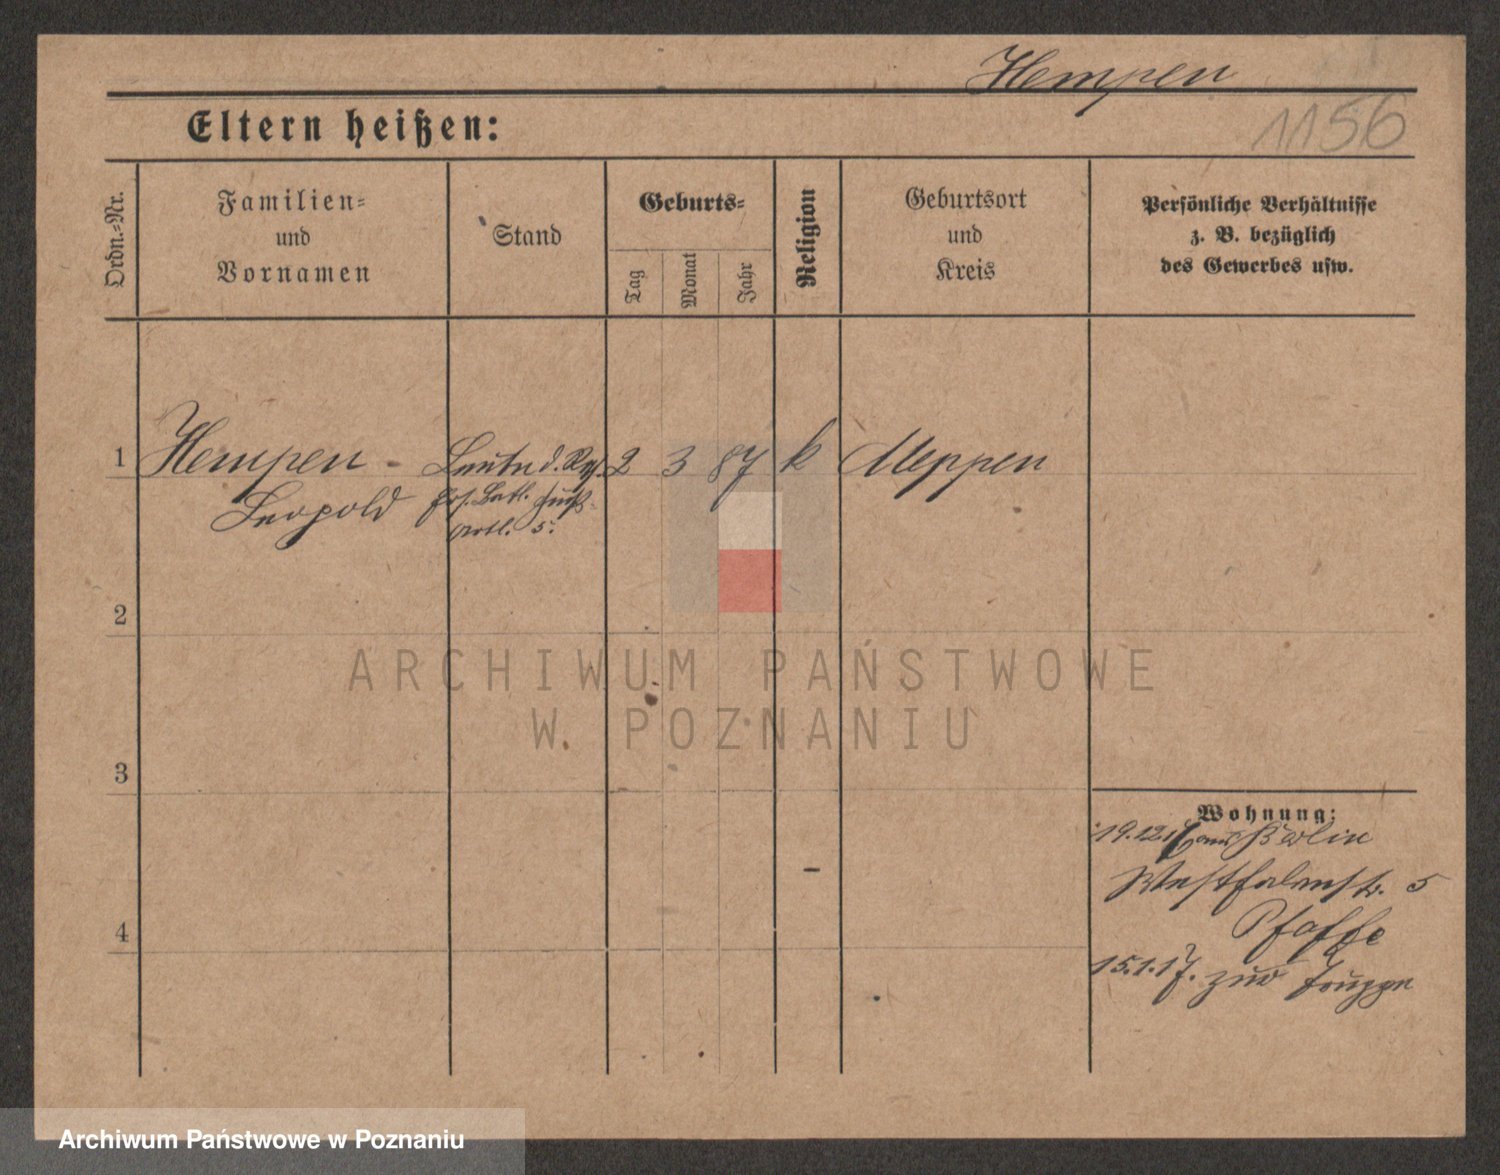 Hempen
1156
Eltern heißen:
Ordn.-Nr.
Familien-
und
Vornamen
Stand
Geburts-
Tag
Monat
Jahr
Religion
Geburtsort
und
Kreis
Persönliche Verhältnisse
z. B. bezüglich
des Gewerbes usw.
1 Hempen - Leutn d. Res. 2 3 87 k Meppen
Leopold Ers. Batl. Fuß-
Artl. 5.
2
ARCHIWUM PAŃSTWOWE
W POZNANIU
3
Wohnung:
19.12.16 aus Berlin
Westfalenstr. 5
Pfaffe
4
15.1.17. zur Truppe
Archiwum Państwowe w Poznaniu